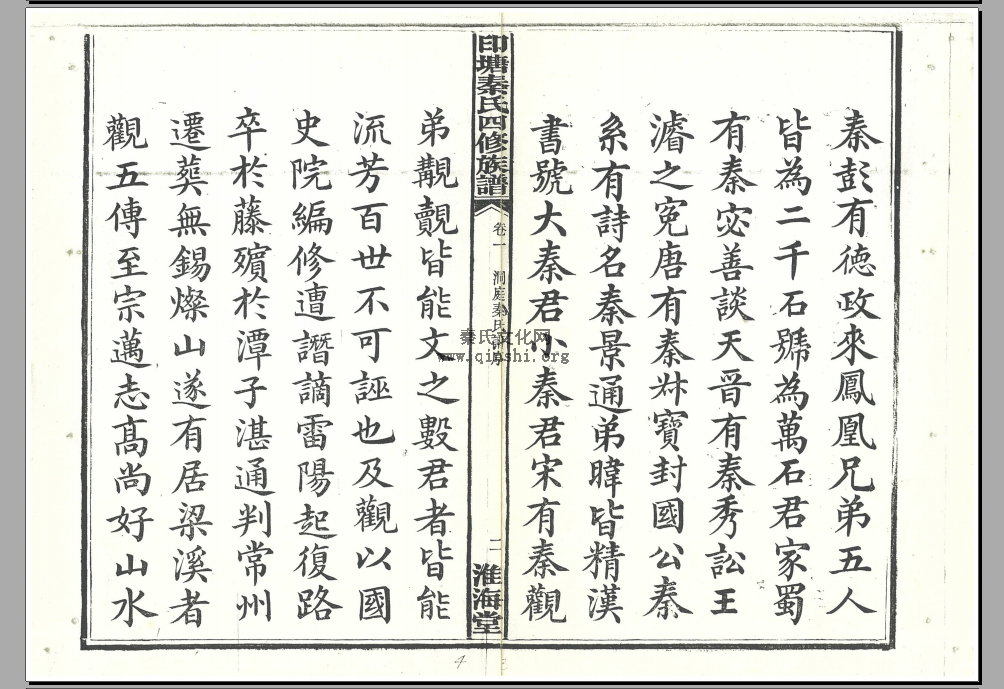 秦彭有德政來鳳凰兄弟五人
皆為二千石號為萬石君家蜀
有秦宓善談天晋有秦秀訟王
濬之寃唐有秦叔寶封國公秦
系有詩名秦景通弟暐皆精漢
書號大秦君小秦君宋有秦觀
印塘秦氏四修族譜
卷一
洞庭秦氏譜序
二
淮海堂
弟覯覿皆能文之數君者皆能
流芳百世不可誣也及觀以國
史院編修遭譖謫雷陽起復路
卒於藤殯於潭子湛通判常州
遷葬無錫燦山遂有居梁溪者
觀五傳至宗邁志髙尚好山水
秦氏文化网
www.qinshi.org
4